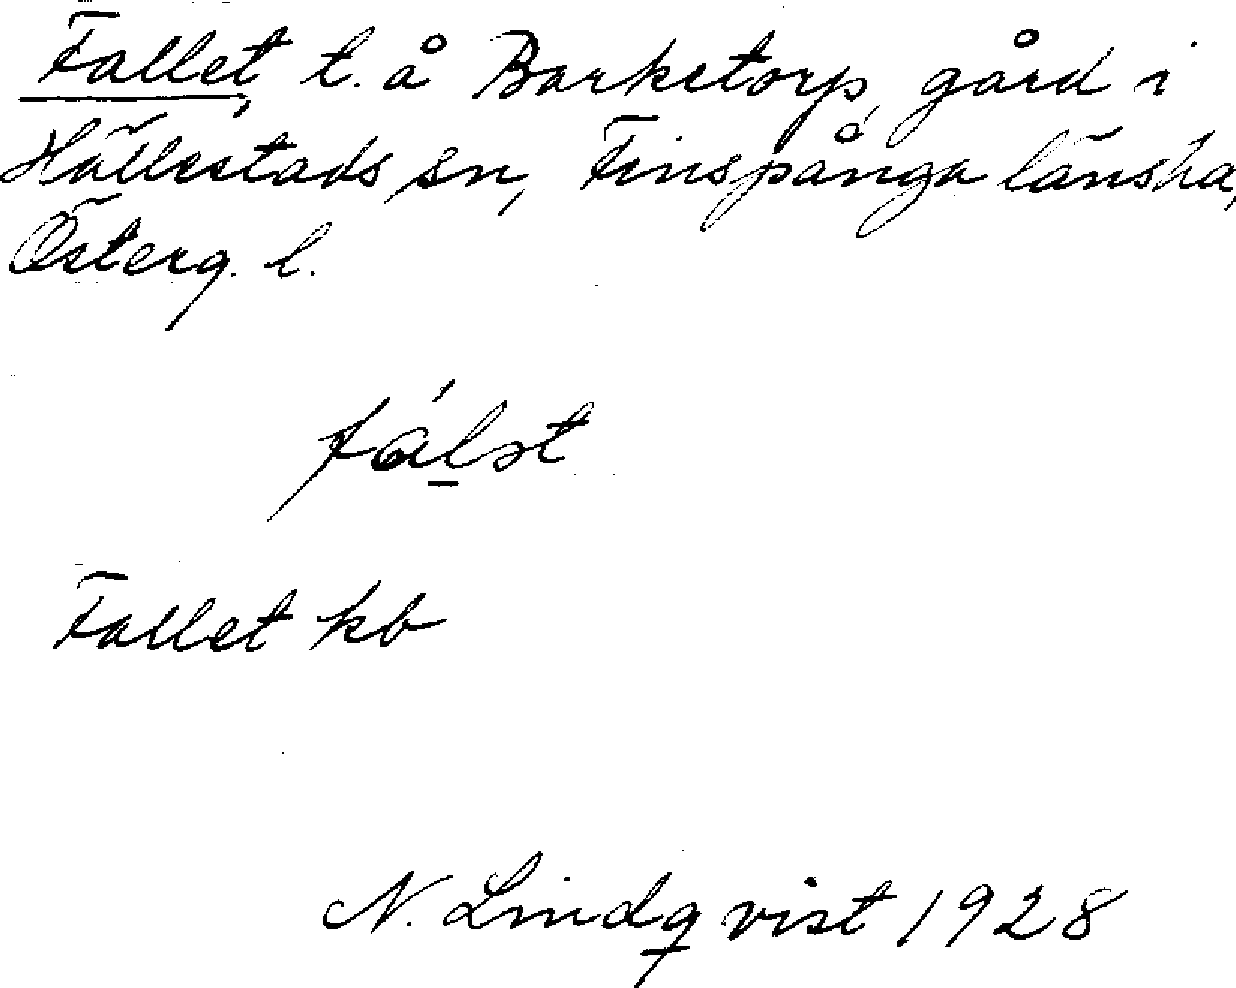 Fallet, t. å Barketorp, gård i
Hällestads sn, Finspånga länshd,
Österg. l.
fá̀lət
Fallet kb
N. Lindqvist 1928